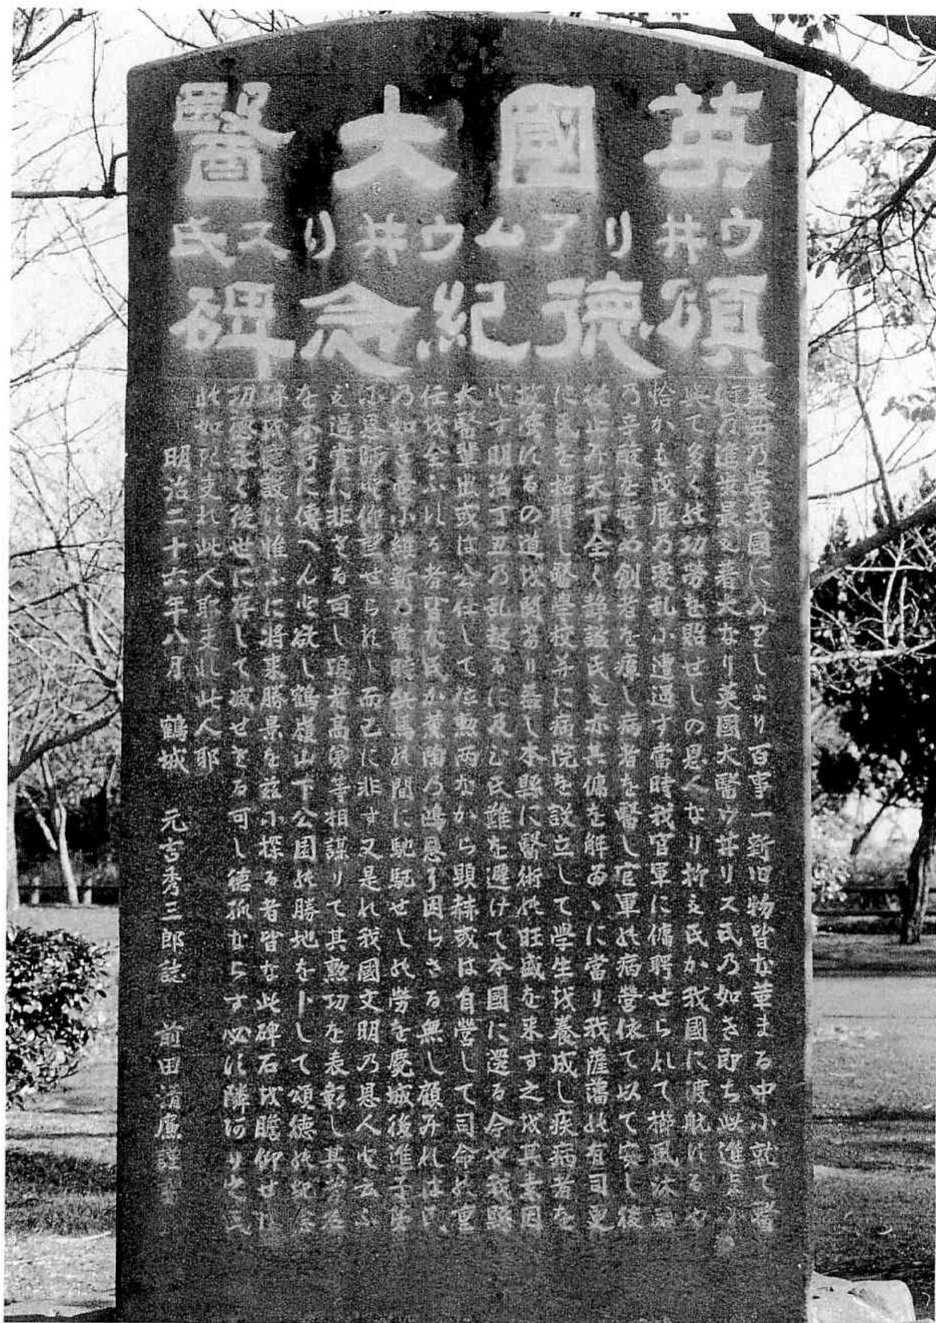 英國大醫
ウ井リアムウ井リス氏
頌德紀念碑
泰西乃學我國に入りしより百事一新旧物皆な革まる中小就て醫
術乃進步最も著大なり英國大醫ウ井リス氏乃如き即ち此進步に
與て多くの功勞を賜せしの恩人なり抑も氏か我國に渡航するや
恰かも戊辰乃変乱小遭遇す當時我官軍に傭聘せられて櫛風沐雨
乃辛酸を甞め創者を療し病者を醫し官軍の病營依て以て安し後
止み天下全く静謐氏も亦其傭を解るゝに當り我薩藩の有司更
に氏を招聘し醫學校并に病院を設立して學生を養成し疾病者を
救濟するの道を開あり蓋し本縣に醫術の旺盛を来す之を其素因
とす明治丁丑乃乱起るに及ひ氏難を避けて本國に還る今や我縣
大醫輩出或は公仕して位勲両なから顕赫或は自營して司命の重
任を全ふする者皆な氏か薫陶乃鴻恩に因らさる無し顧みれは氏
乃如き啻小維新乃當時兵馬の間に馳駆せしの勞を慶城後進子弟
恩師と仰望せられし而已に非す又是れ我國文明乃恩人と云ふ
も過賞に非さる可し頃者高弟等相謀りて其勲功を表彰し其芳名
を不朽に傳へんと欲し鶴嶺山下公園の勝地を卜して頌徳の紀念
碑 惟ふに将来勝景を茲小探る者皆な此碑石を瞻仰せは
功 永く後世に存して滅せさる可し徳孤ならす必す隣河りと云
此如 夫れ此人耶夫れ此人耶
明治二十六年八月 鶴城 元吉秀三郎誌 前田清廉謹書